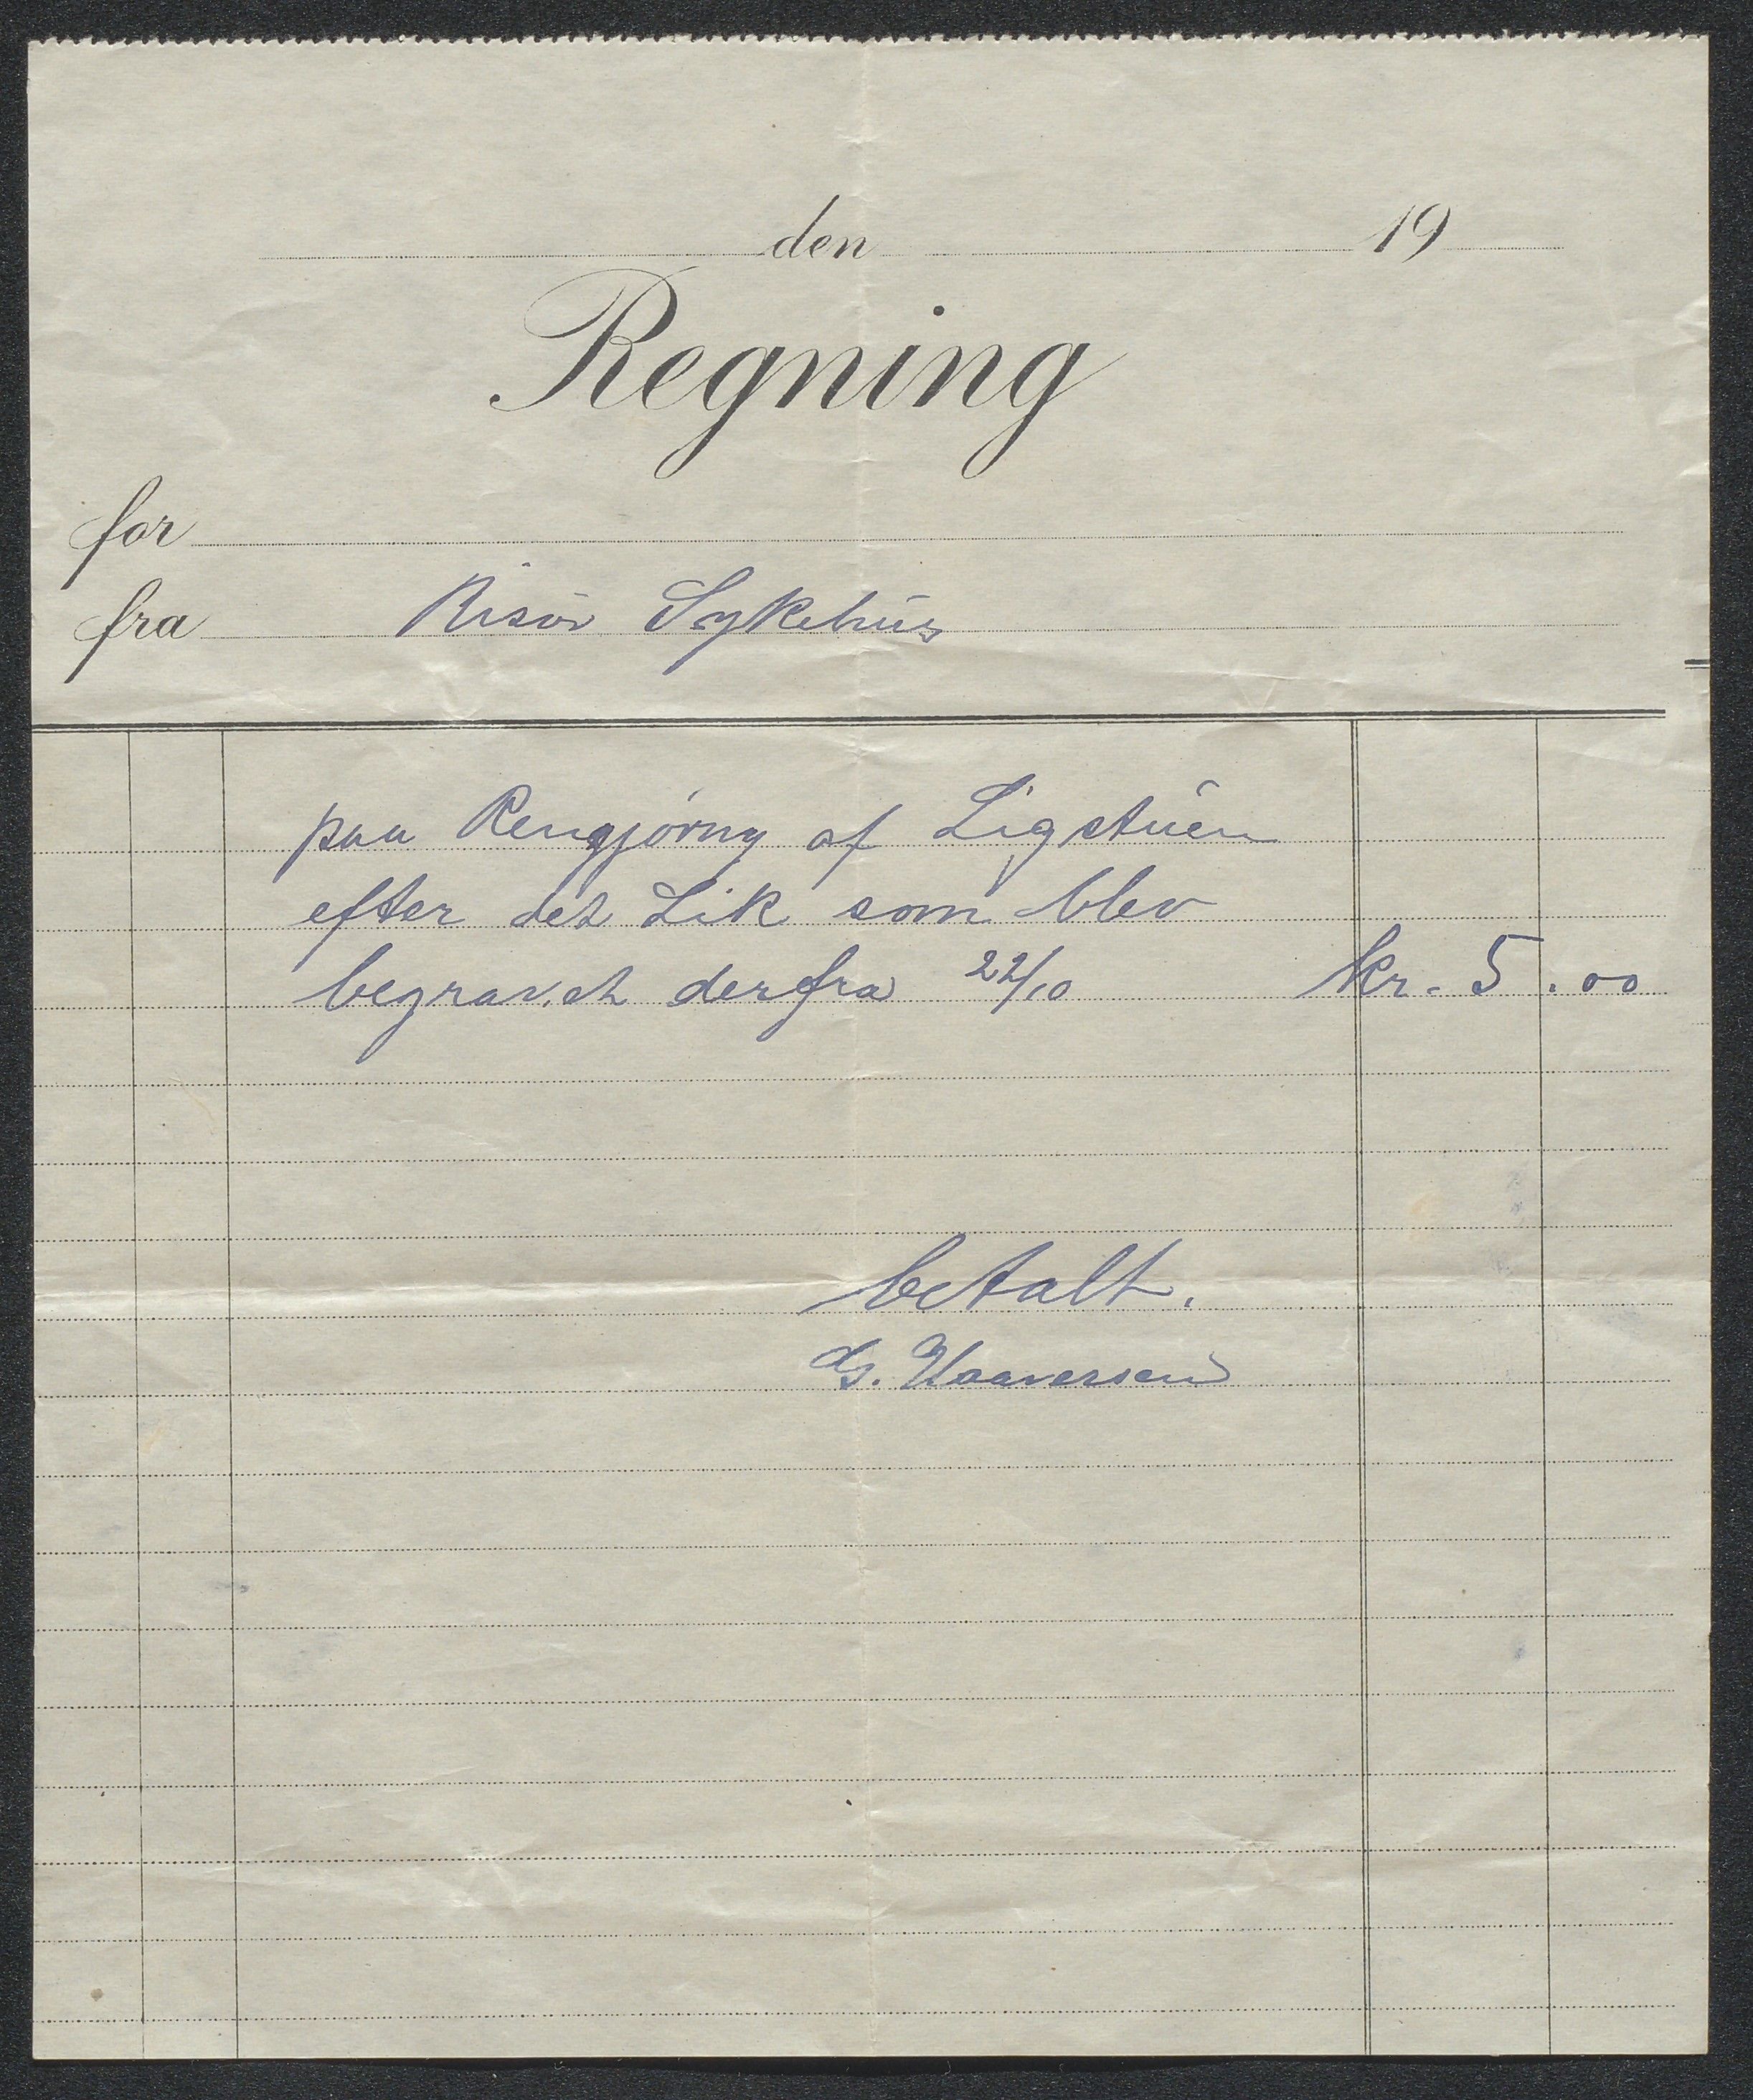 den 19
Regning
for
fra Risør Sykehus
paa Rengjøring af Ligstuen
efter det Lik som blev
begravet derfra 22/10 kr. 5.00
betalt.
G. Haaversen